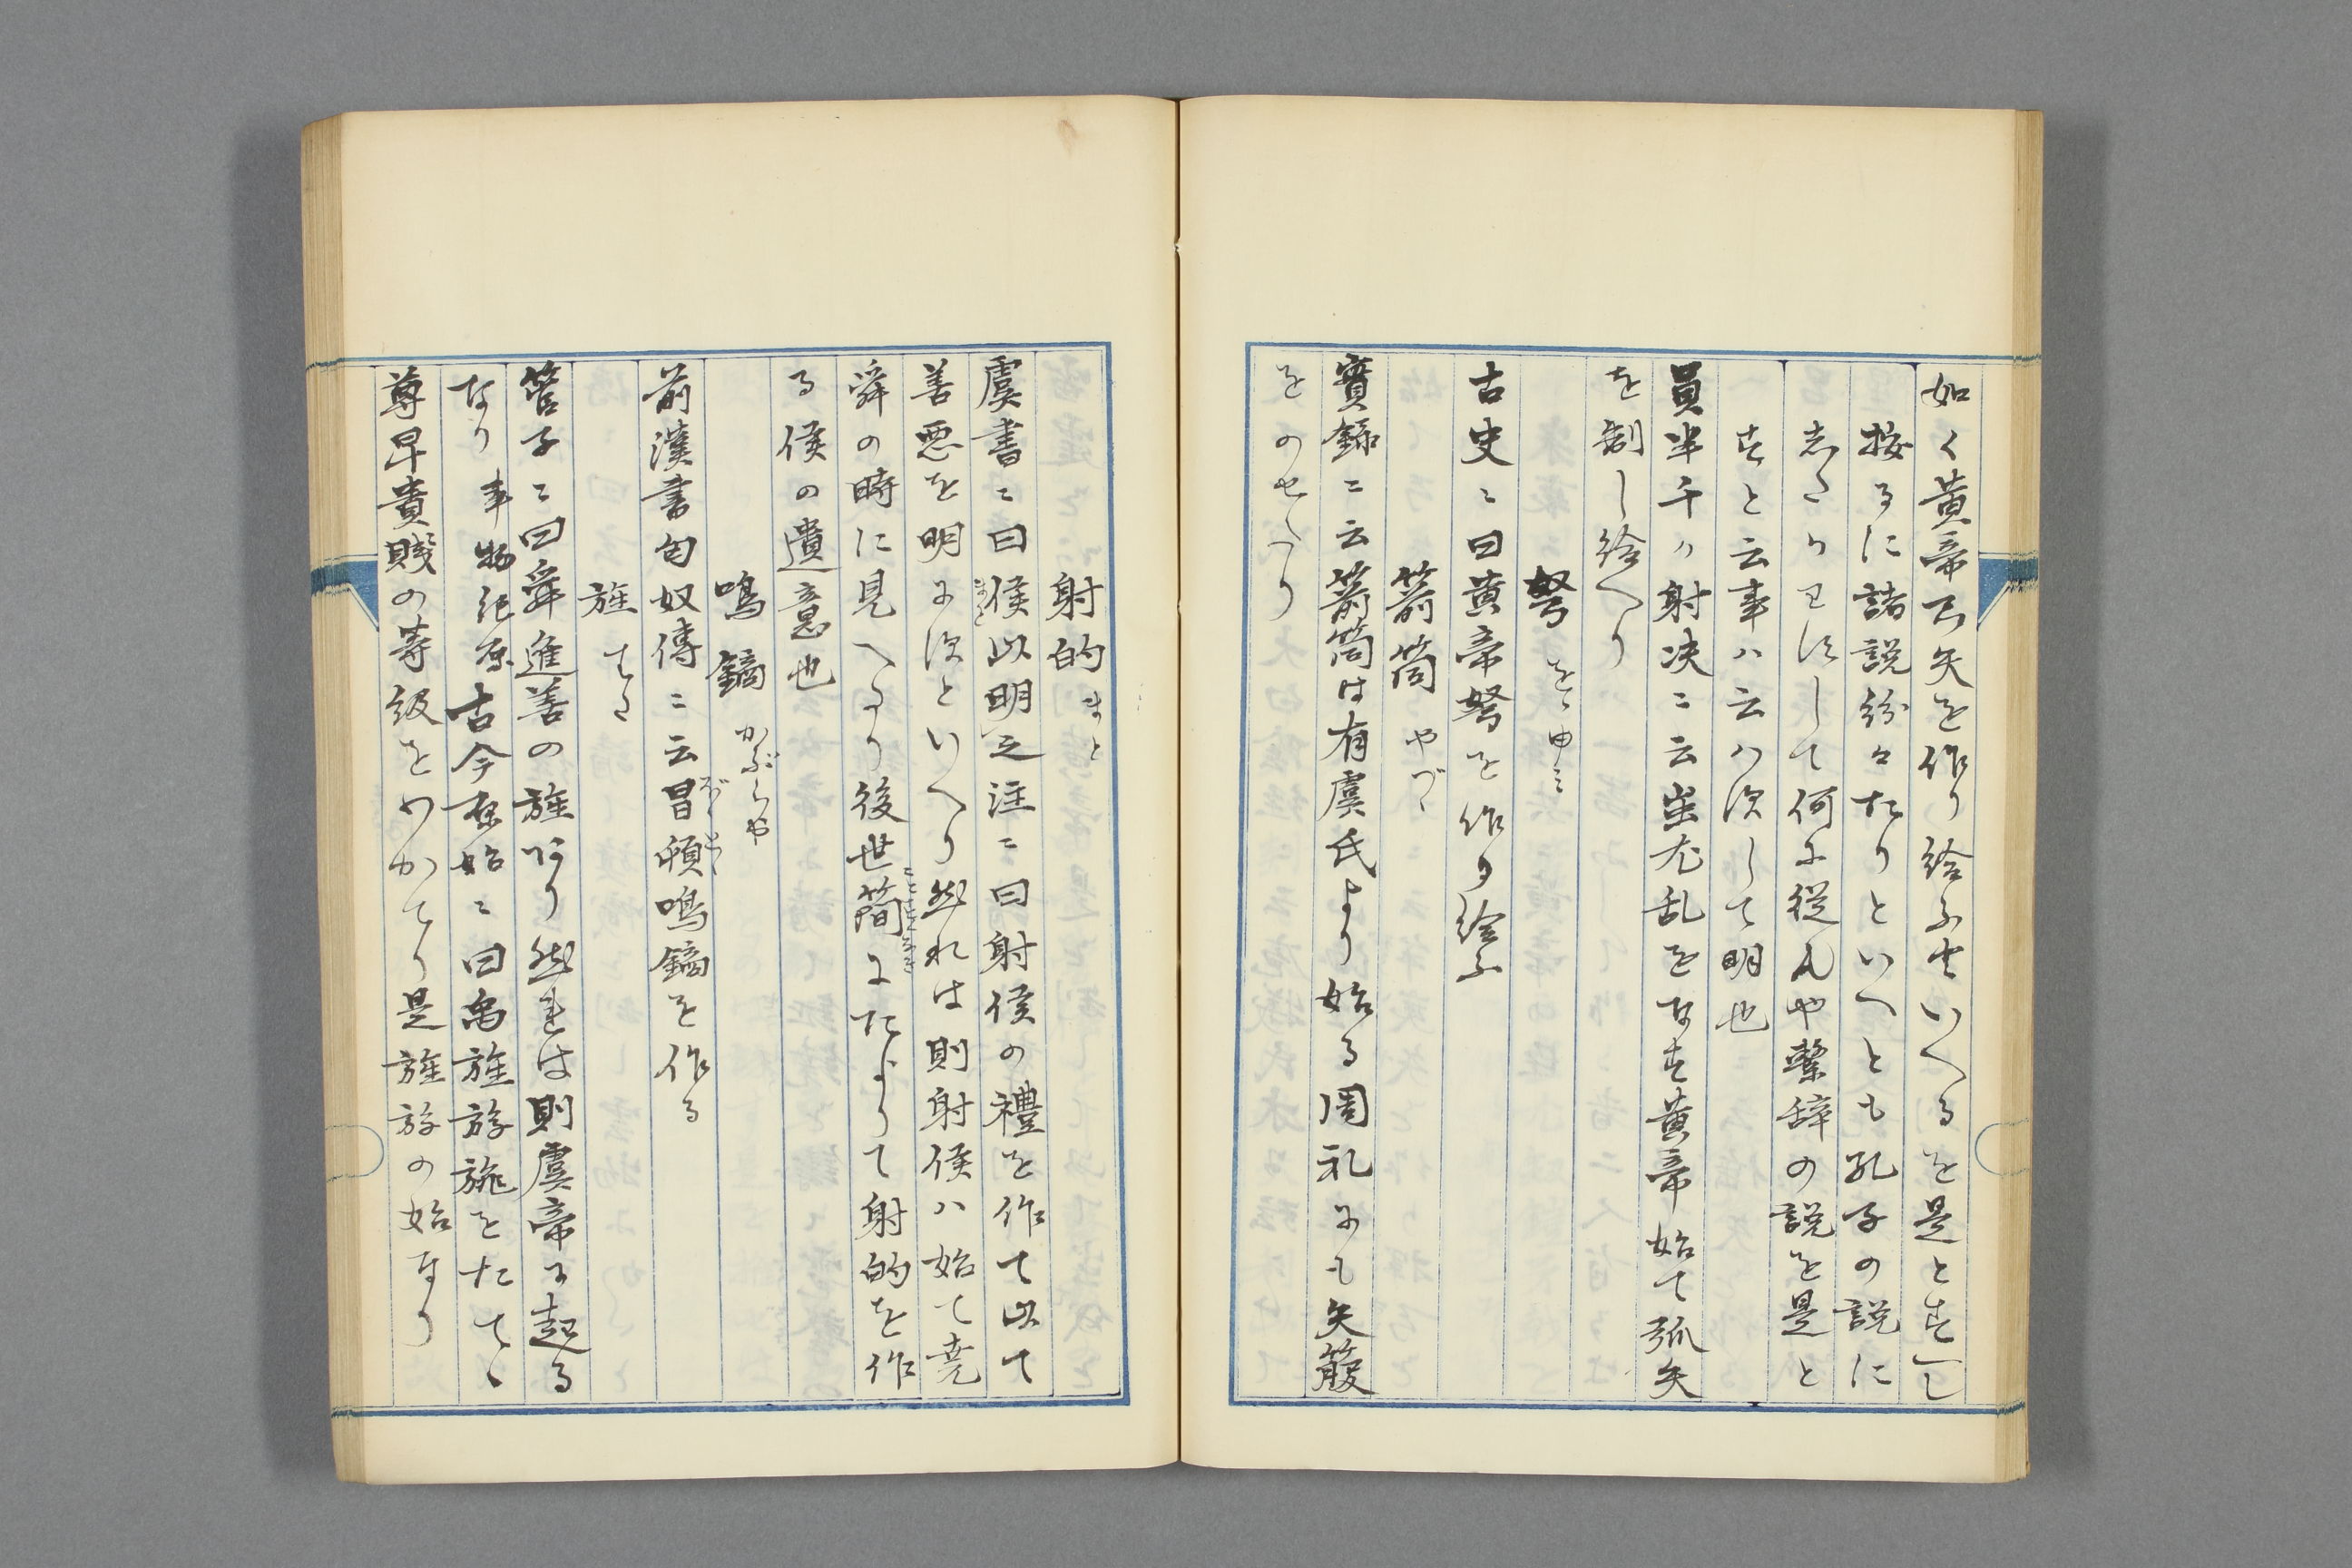 如く黄帝弓矢を作り給ふといへるを是とすべし
按るに諸説紛々たりといへとも孔子の説に
したかはすして何に従んや繋辞の説を是と
すと云事ハ云ハすして明也
員半千ハ射决ニ云蚩尤乱をなす黄帝始て弧矢
を制し給へり
弩 をゝゆミ
古史ニ曰黄帝弩を作り給ふ
箭筒 やづゝ
實録ニ云箭筒は有虞氏より始る周礼にも矢箙
をのせたり
射的 まと
虞書ニ曰侯以明之注ニ曰射侯の禮を作て以て
善悪を明にすといへり然れは則射侯ハ始て尭
舜の時に見へたり後世簡にたよりて射的を作
る侯の遺意也
鳴鏑 かぶらや
前漢書匈奴傳ニ云冒頓鳴鏑を作る
旌 はた
管子ニ曰舜進善の旌あり然れは則虞帝に起る
なり事物紀原古今原始ニ曰禹旌旂旐をたてゝ
尊卑貴賤の等級をわかてり是旌旂の始なり